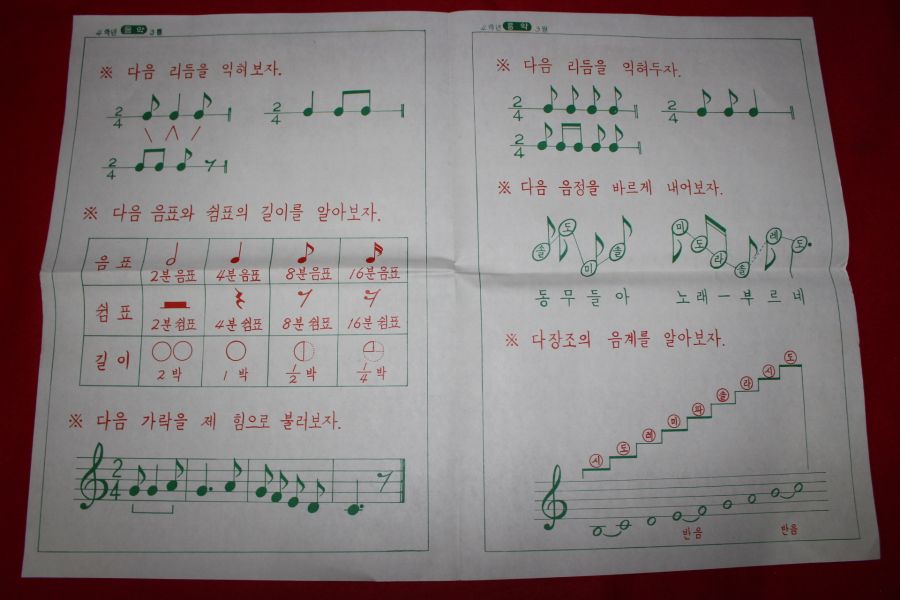 4학년 음악 3월
※ 다음 리듬을 익혀보자.
2 4
2 4
2 4
※ 다음 음표와 쉼표의 길이를 알아보자.
음 표 2분음표 4분음표 8분음표 16분음표
쉼 표 2분쉼표 4분쉼표 8분쉼표 16분쉼표
길 이 2 박 1 박 1/2 박 1/4 박
※ 다음 가락을 제 힘으로 불러보자.
2 4
4학년 음악 3월
※ 다음 리듬을 익혀두자.
2 4
2 4
2 4
※ 다음 음정을 바르게 내어보자.
솔 도 미 솔 미 도 라 솔 레 도
동 무 들 아 노 래 ー 부 르 네
※ 다장조의 음계를 알아보자.
시 도 레 미 파 솔 라 시 도
반음 반음